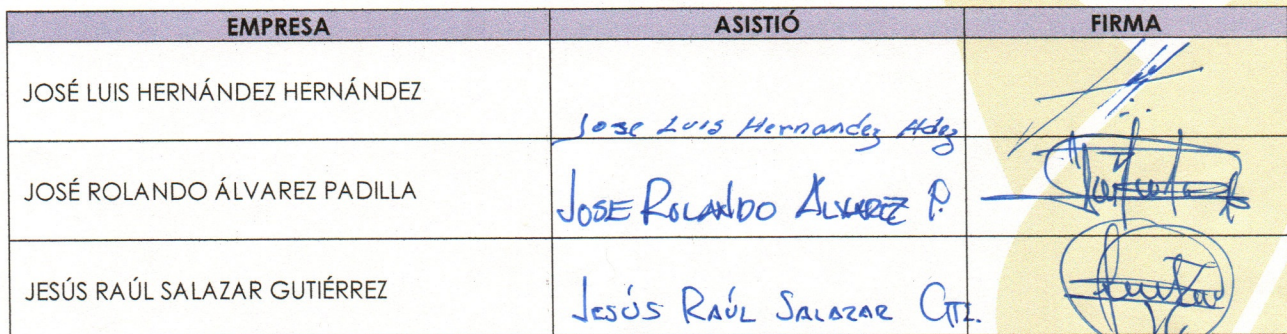 EMPRESA ASISTIÓ FIRMA
JOSÉ LUIS HERNÁNDEZ HERNÁNDEZ
Jose Luis Hernandez Hdez
JOSÉ ROLANDO ÁLVAREZ PADILLA
JOSE ROLANDO ALVAREZ P.
JESÚS RAÚL SALAZAR GUTIÉRREZ
JESÚS RAÚL SALAZAR GTZ.